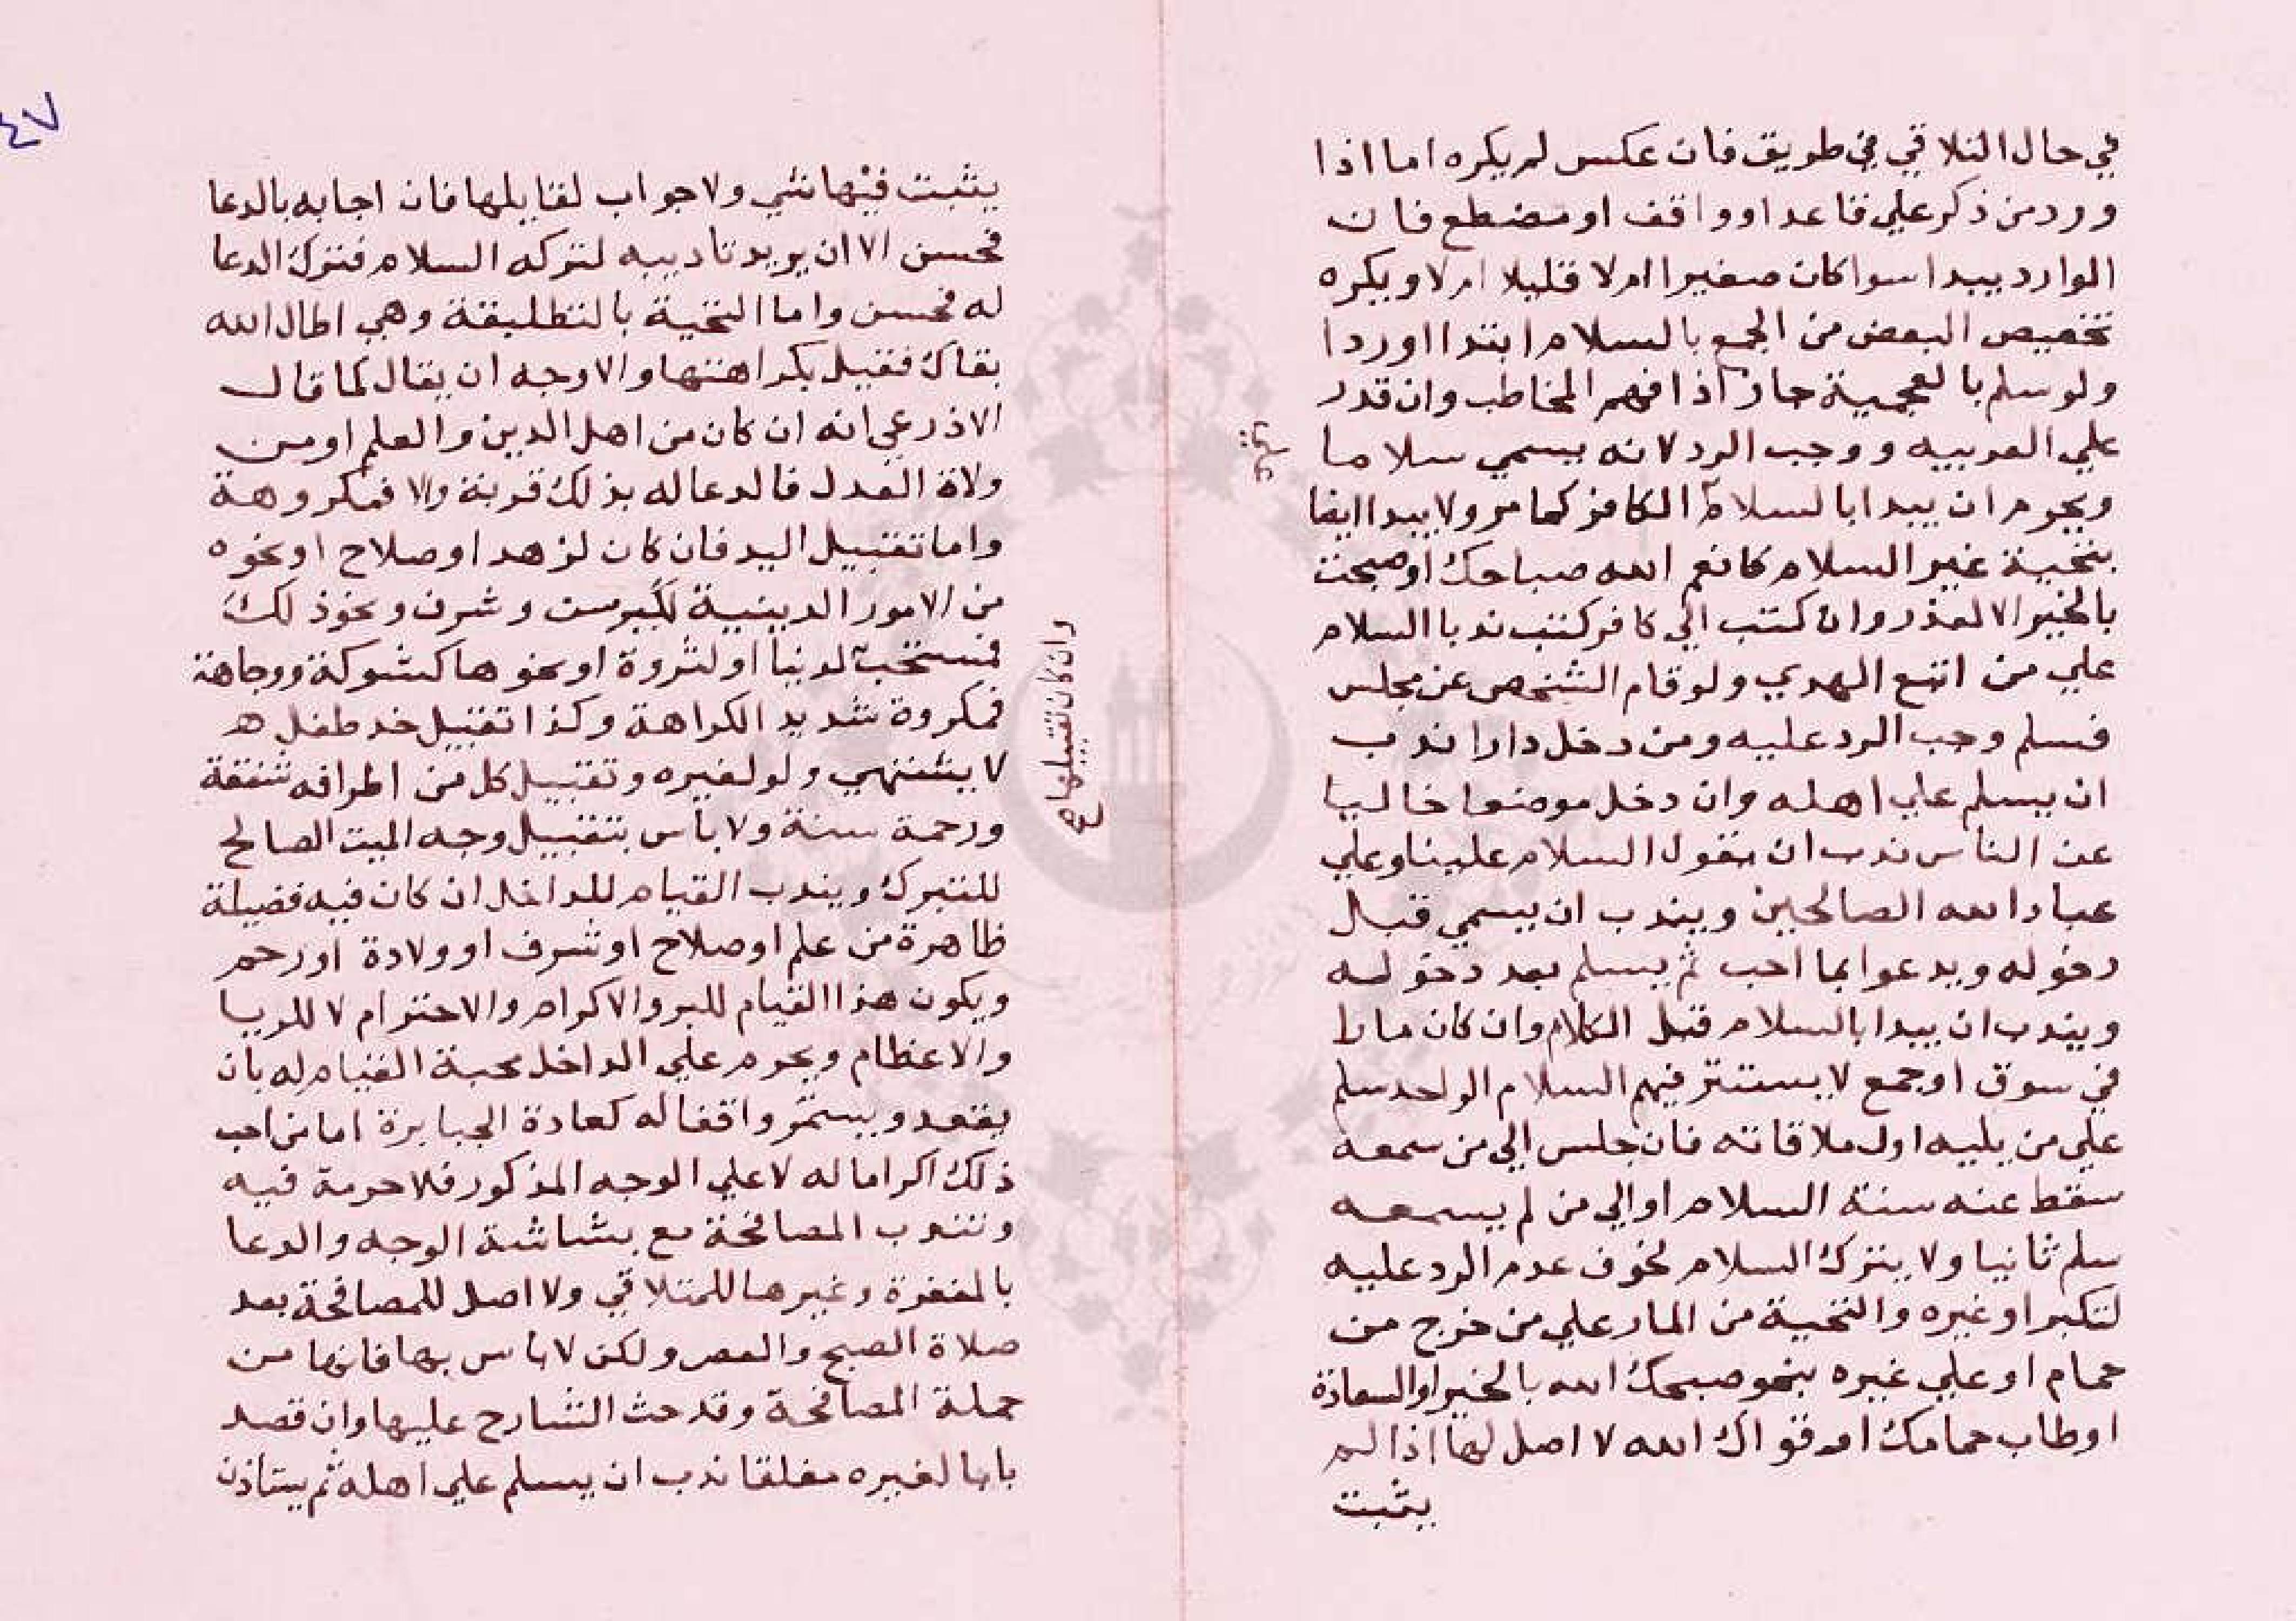 في حال التلاقي في طريق فان عكس لم يكره اما اذا
ورد من ذكر علي قاعد او واقف او مضطع فان
الوارد يبدا سوا كان صغيرا ام لا قليلا ام لا ويكره
تخصيص البعض من الجمع بالسلام ابتدا او ردا
ولو سلم بالعجمية جاز اذا فهم المخاطب وان قدر
علي العربيه ووجب الرد لانه يسمي سلاما
ويحرم ان يبدا بالسلام الكافر كما مر ولا يبدا ايضا
بتحية غير السلام كانعم الله صباحك او صبحت
بالخير الا لعذر وان كتب الي كافر كتب ندبا السلام
علي من اتبع الهدي ولو قام الشخص عن مجلس
فسلم وجب الرد عليه ومن دخل دارا ندب
ان يسلم علي اهله وان دخل موضعا خاليا
عن الناس ندب ان يقول السلام علينا وعلي
عباد الله الصالحين ويندب ان يسمي قبل
دخوله ويدعوا بما احب ثم يسلم بعد دخوله
ويندب ان يبدا بالسلام قبل الكلام وان كان مارا
في سوق او جمع لا يستتر فيهم السلام الواحد سلم
علي من يليه اول ملاقاته فان جلس الي من سمعه
سقط عنه سنة السلام او الي من لم يسمعه
سلم ثانيا ولا يترك السلام لخوف عدم الرد عليه
لتكبر او غيره والتحية من المار علي من خرج من
حمام او علي غيره بنحو صبحك الله بالخير او السعادة
او طاب حمامك او قواك الله لا اصل لها اذا لم
يثبت
٤٧
يثبت فيها شي ولا جواب لقايلها فان اجابه بالدعا
فحسن الا ان يريد تاديبه لتركه السلام فترك الدعا
له فحسن واما التحية بالتطليقة وهي اطال الله
بقاك فقيل بكراهتها والاوجه ان يقال كما قال
الاذرعي انه ان كان من اهل الدين والعلم او من
ولاة العدل فالدعا له بذلك قربة والا فمكروهة
واما تقبيل اليد فان كان لزهد او صلاح او نحوه
من الامور الدينية لكبر سن وشرف ونحو ذلك
فمستحب لدنيا او لثروة او نحوها كشوكة ووجاهة
وان كان تقبيلها صح
فمكروة شديد الكراهة وكذا تقبيل خد طفل ه
لا يشتهي ولو لغيره وتقبيل كل من اطرافه شفقة
ورحمة سنة ولا بأس بتقبيل وجه الميت الصالح
للتبرك ويندب القيام للداخل ان كان فيه فضيلة
ظاهرة من علم او صلاح او شرف او ولادة او رحم
ويكون هذا القيام للبر والاكرام والاحترام لا للريا
والاعظام ويحرم علي الداخل محبة القيام له بان
يقعد ويستمر واقفا له كعادة الجبابرة اما من احب
ذلك اكراما له لا علي الوجه المذكور فلا حرمة فيه
وتندب المصافحة مع بشاشة الوجه والدعا
بالمغفرة وغيرها للمتلاقي ولا اصل للمصافحة بعد
صلاة الصبح والعصر ولكن لا باس بها فانها من
جملة المصافحة وقد حث الشارح عليها وان قصد
بابا لغيره مغلقا ندب ان يسلم علي اهله ثم يستاذن